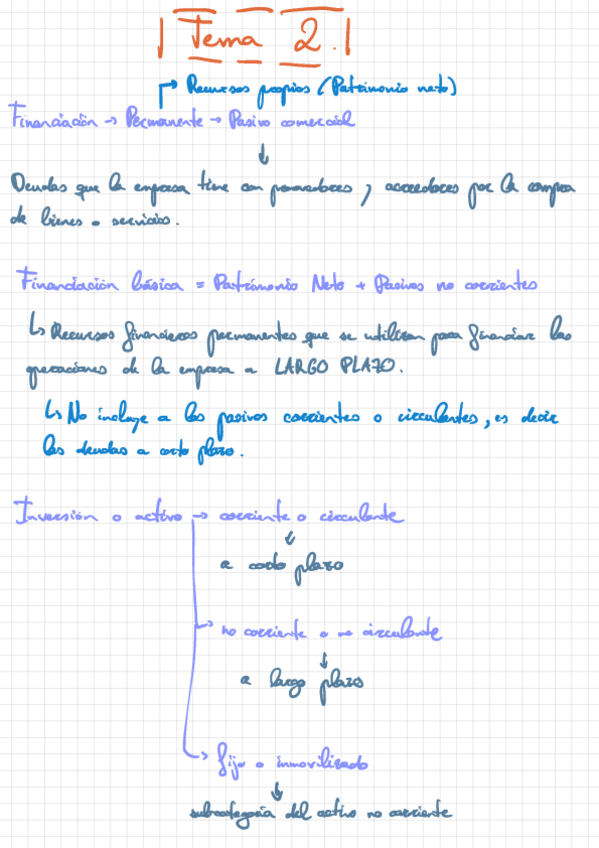 Tema 2.
→ Recursos propios (Patrimonio neto)
Financiación → Permanente → Pasivo comercial
↓
Deudas que la empresa tiene con proveedores y acreedores por la compra
de bienes o servicios.
Financiación básica = Patrimonio Neto + Pasivos no corrientes
↳ Recursos financieros permanentes que se utilizan para financiar las
operaciones de la empresa a LARGO PLAZO.
↳ No incluye a los pasivos corrientes o circulantes, es decir
las deudas a corto plazo.
Inversión o activo → corriente o circulante
↓
a corto plazo
→ no corriente o no circulante
↓
a largo plazo
→ fijo o inmovilizado
↓
subcategoría del activo no corriente